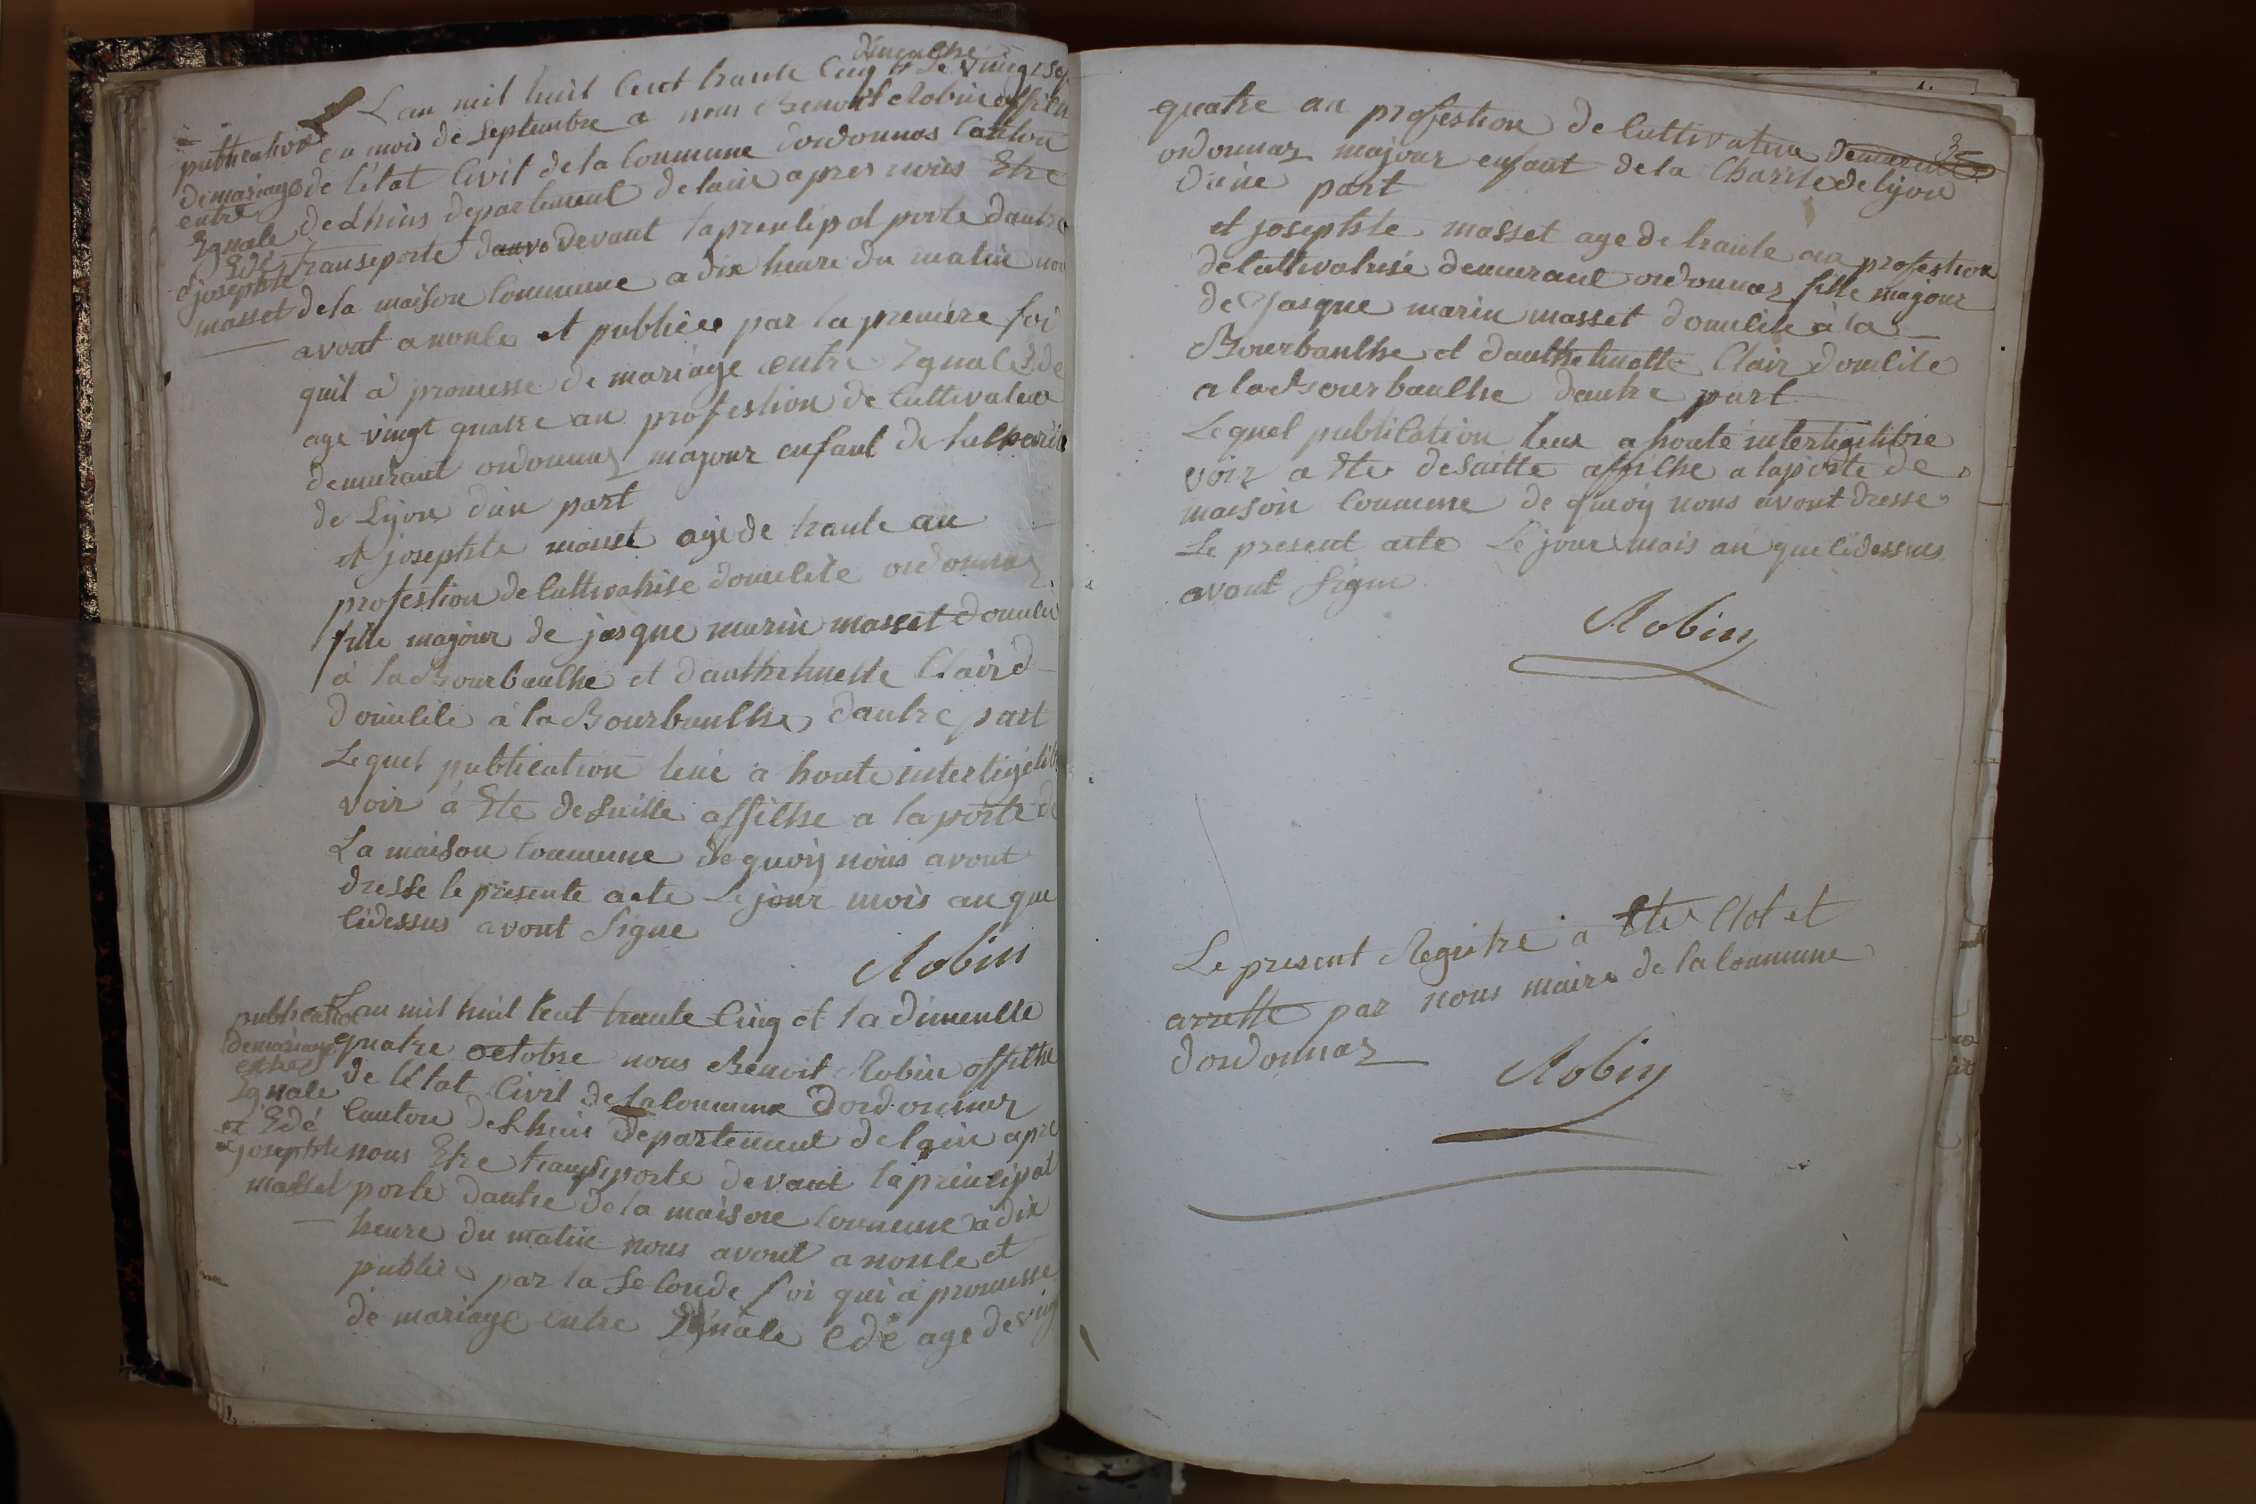 dimenche
L an mil huit cent trante cinq et le vingt sep
publication du mois de septembre a nous Benoit Robin officie
de mariage de l'état civil de la commune dordonnas canton
entre
Ignale de Lhuis departement de lain apres nous Etre
Edé transporte devant la prencipal porte dantre
et josephte
masset de la maison commune a dix heure du matin nou
avont anonce et publiee par la premiere foi
quil à promesse de mariage entre Ignale Ede
age vingt quatre an profestion de cultivateur
demurant ordonnaz majour enfant de la charite
de Lyon dun part
et josephte masset age de trante an
profestion de cultivatrise domicile ordonnaz
fille majour de jasque marin masset domicile
à la Bourbanche et danthelmette Clair d
domicile à la Bourbanche dautre part
Lequel publication leue a haute interligible
voir à Ete de suitte affiche a la porte de
La maison commune de quoy nous avont
dresse le presente acte Le jour mois an que
cidessus avont signe
Robin
publication L an mil huit cent trante cinq et la dimenche
de mariage quatre octobre nous Benoit Robin officie
entre
Ignale de l'état Civil de la commune dordonnaz
et Edé canton de Lhuis departement de lain apre
et josephte nous Etre transporte devant la principal
masset porte dantre de la maison commune à dix
heure du matin nous avont anonce et
publie par la seconde foi qui à promesse
de mariage entre Ignale Edé age de ving
35
quatre an profestion de cultivateur demurant
ordonnaz majour enfant de la Charite de Lyon
dune part
et josephte masset age de trante an profestion
de cultivatrise demurant ordonnaz fille majour
de Jasque marin masset domicile à la
Bourbanche et danthelmette Clair domicile
a la Bourbanche dautre part
Lequel publication leue a haute interligibre
voir a Ete de suitte affiche a la porte de
maison commune de quoy nous avont dresse
Le present acte Le jour mais an que cidessus
avont signe
Robin
Le present Registre a Ete Clot et
arrette par nous maire de la commune
dordonnaz
Robin